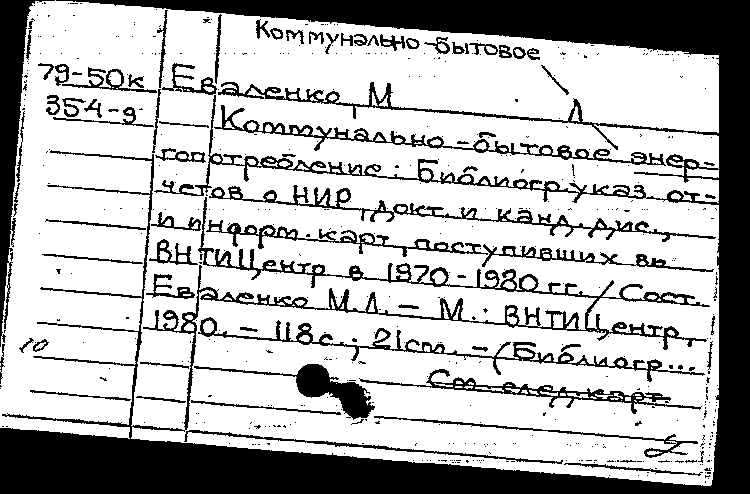 Коммунально-бытовое
79-50к Еваленко, М Л
354-9 Коммунально-бытовое энер-
гопотребление: Библиогр.указ от-
четов о НИР, докт. и канд. дис.,
и информ. карт, поступивших во
ВНТИЦентр в 1970-1980 гг. / Сост.
Еваленко М.Л. — М.: ВНТИЦентр,
1980. — 118с.; 21см. — (Библиогр...
10
См след карт.